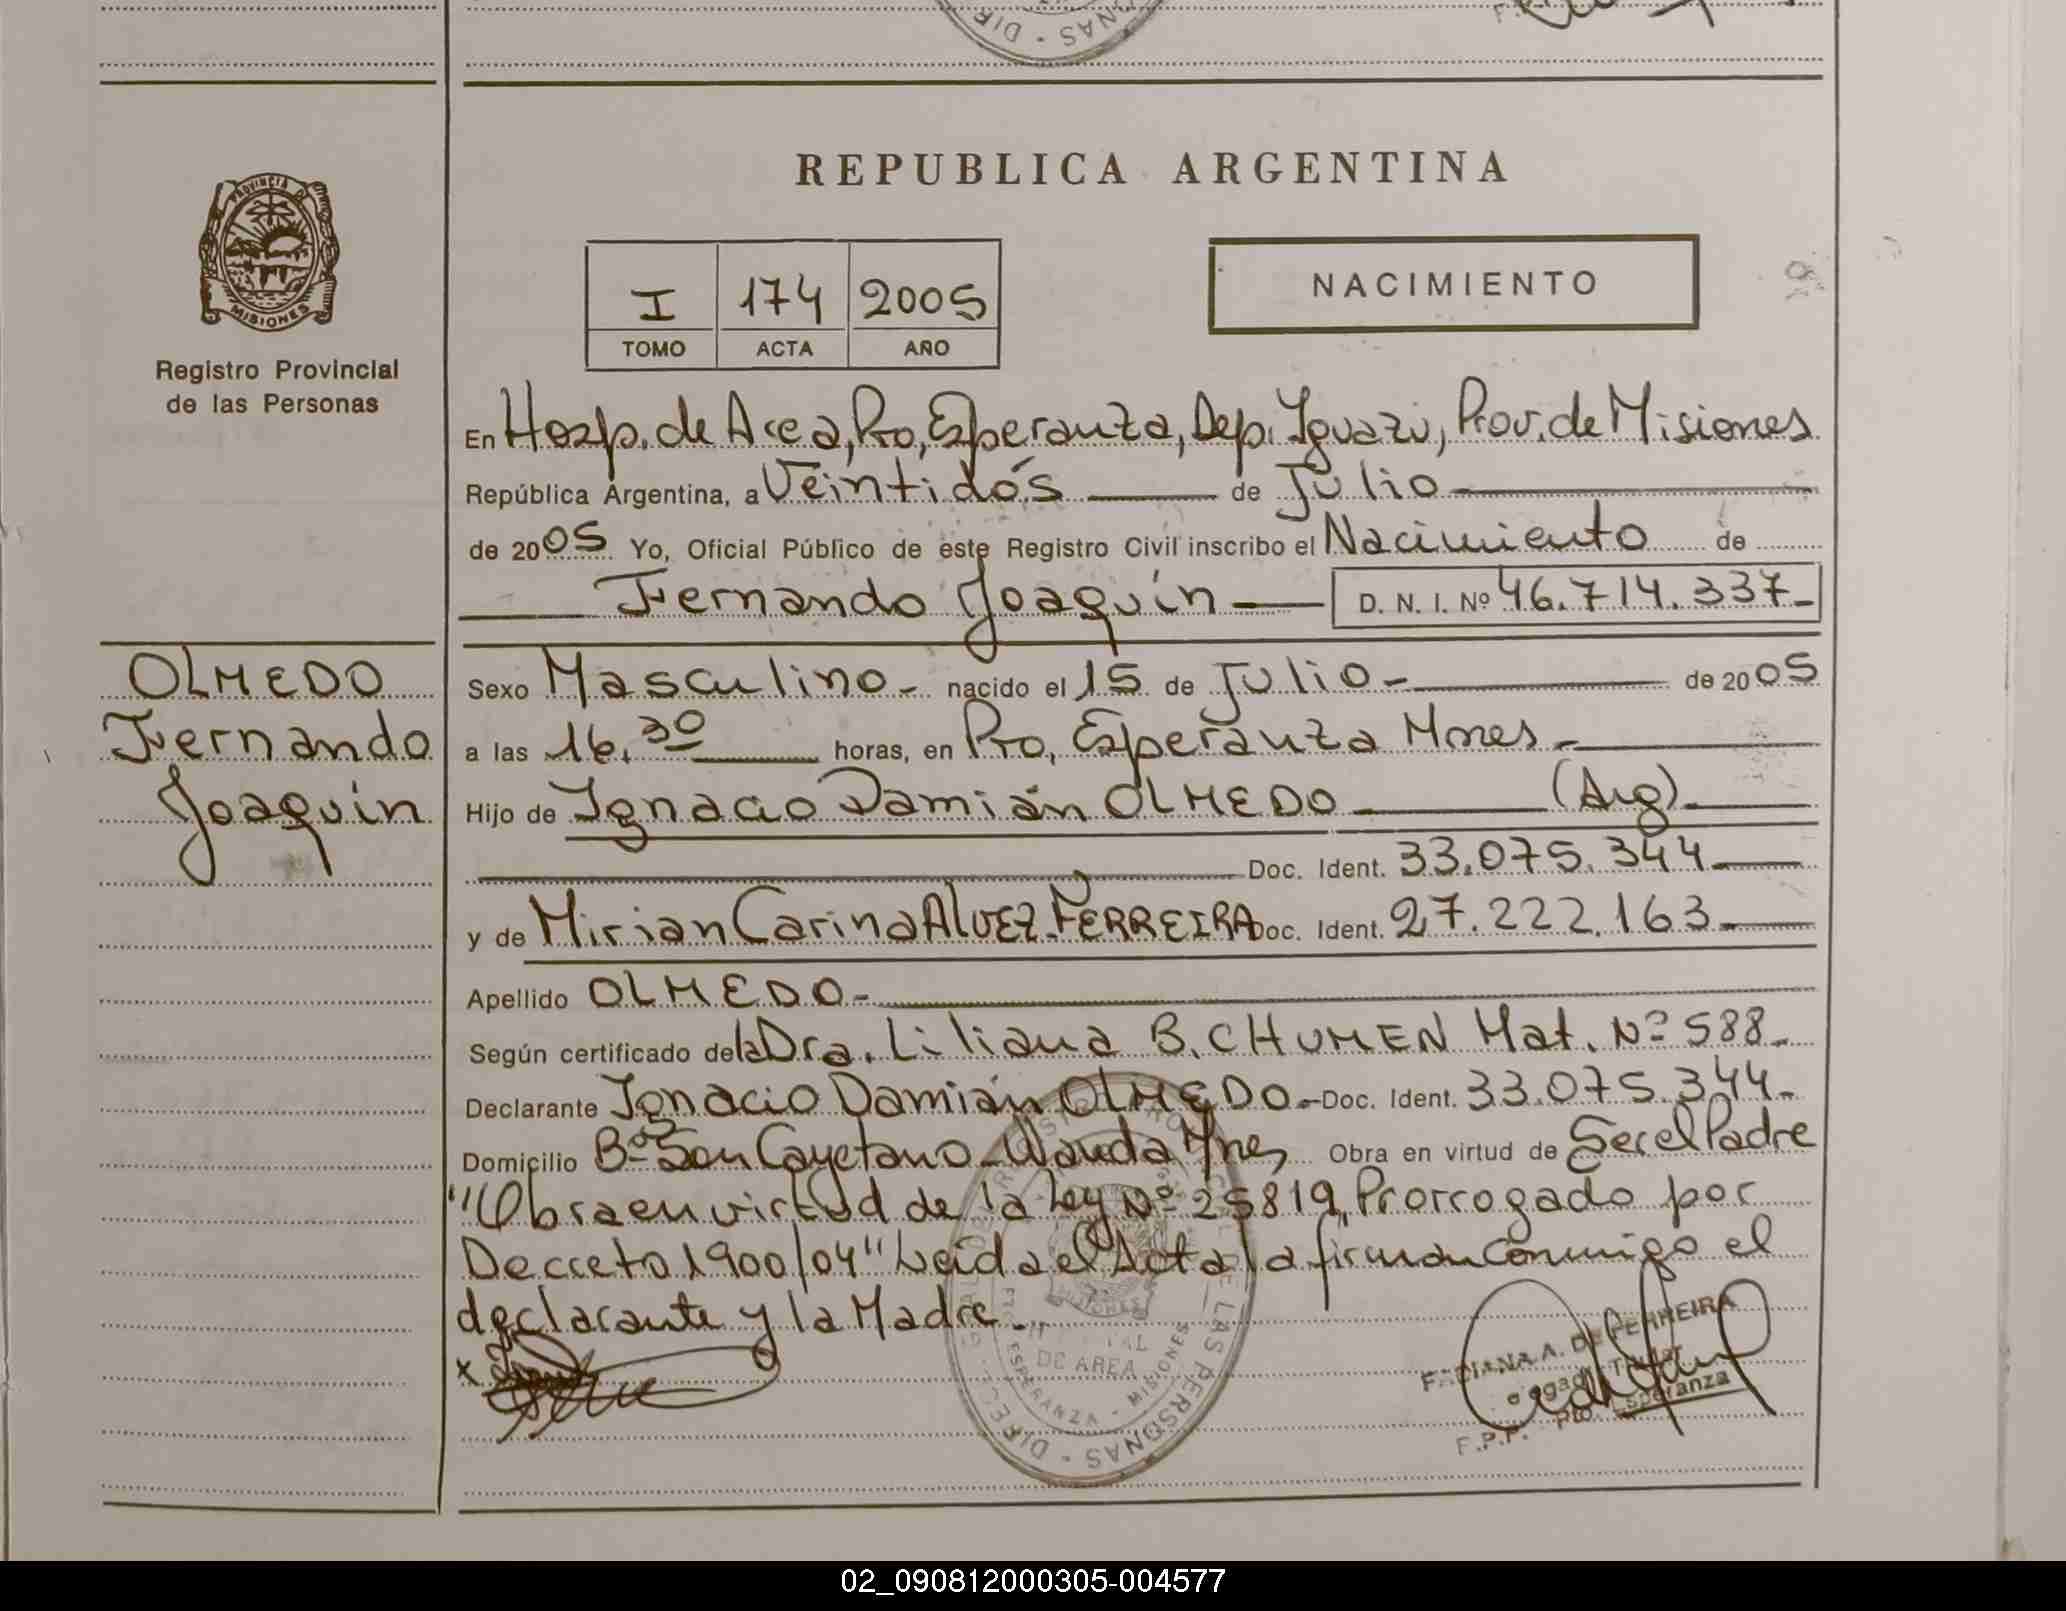 DIR · SANO
REPUBLICA ARGENTINA
PROVINCIA D
MISIONES
Registro Provincial
de las Personas
I 174 2005
TOMO ACTA AÑO
NACIMIENTO
En Hosp. de Area, Pto, Esperanza, Dep. Iguazú, Prov. de Misiones
República Argentina, a Veintidós de Julio
de 2005 Yo, Oficial Público de este Registro Civil inscribo el Nacimiento de
Fernando Joaquín D. N. I. Nº 46.714.337-
OLMEDO
Fernando
Joaquín
Sexo Masculino- nacido el 15 de Julio- de 2005
a las 16,30 horas, en Pto, Esperanza Mnes-
Hijo de Ignacio Damián OLMEDO (Arg)-
Doc. Ident. 33.075.344-
y de Mirian Carina ALVEZ FERREIRA Doc. Ident. 27.222.163-
Apellido OLMEDO-
Según certificado de la Dra. Liliana B. CHUMEN Mat. Nº 588-
Declarante Ignacio Damián OLMEDO.- Doc. Ident. 33.075.344-
Domicilio Bº San Cayetano-Wanda Mnes Obra en virtud de Ser el Padre
"Obra en virtud de la Ley Nº 25819, Prorrogado por
Decreto 1900/04" Leida el Acta la firman Conmigo el
declarante y la Madre.-
x
DE AREA
ESPERANZA - MISIONES
DE LAS PERSONAS - DIREC
A. DE FERREIRA
Pto. Esperanza
F.P.P.
02_090812000305-004577